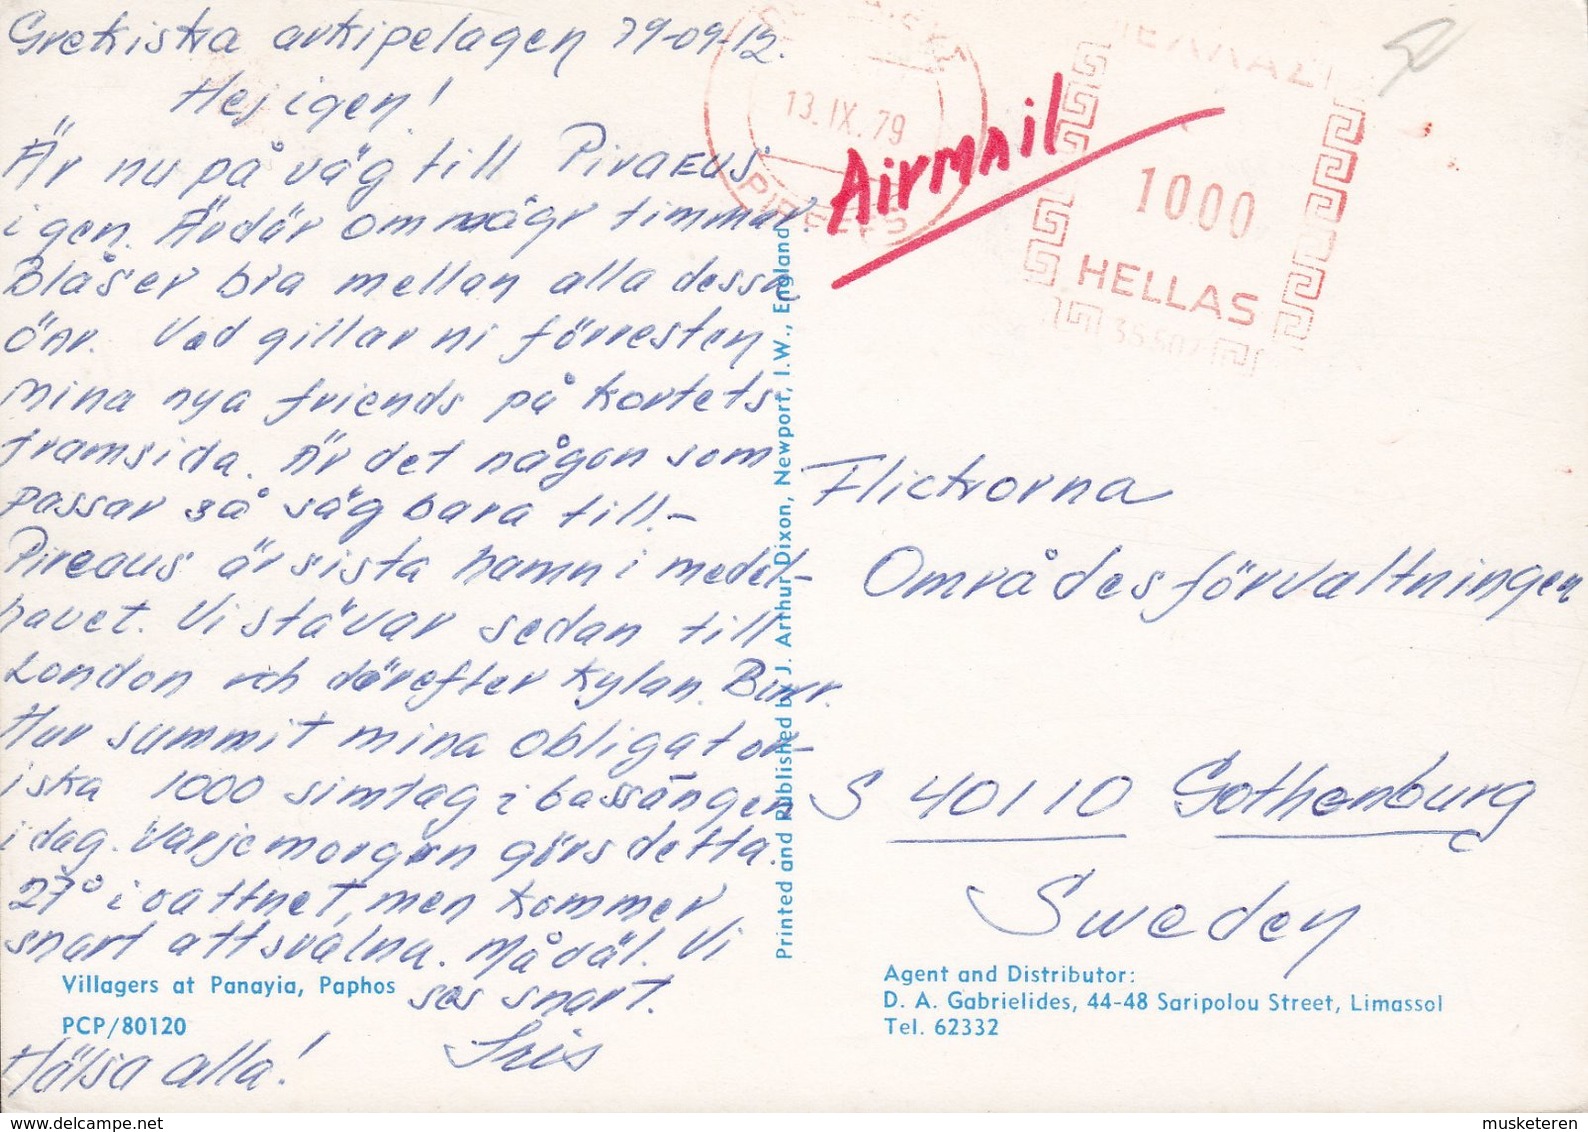 Grekiska arkipelagen 79-09-12.
Hej igen!
Är nu på väg till PiraEUS
igen. Är där om några timmar.
Blåser bra mellan alla dessa
öar. Vad gillar ni förresten
mina nya friends på kortets
framsida. Är det någon som
passar så säg bara till.-
Pireaus är sista hamn i medel-
havet. Vi stävar sedan till
London och därefter Kylan. Burr.
Har summit mina obligator-
iska 1000 simtag i bassängen
i dag. Varje morgon görs detta.
27° i vattnet, men kommer
snart att svalna. Må däl. Vi
ses snart.
Iris
Hälsa alla!
Villagers at Panayia, Paphos
PCP/80120
Printed and Published by J. Arthur Dixon, Newport, I.W., England
13.IX.79
1000
HELLAS
Airmail
Flickorna
Områdesförvaltningen
S 40110 Gothenburg
Sweden
Agent and Distributor:
D. A. Gabrielides, 44-48 Saripolou Street, Limassol
Tel. 62332
musketeren